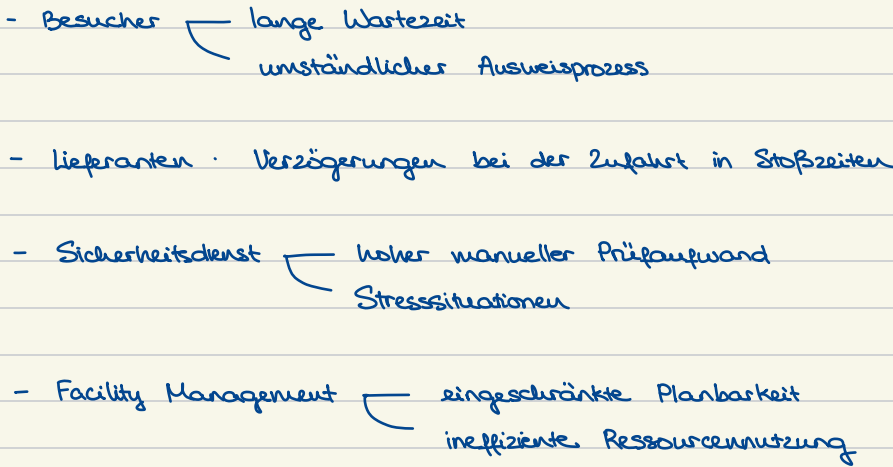 - Besucher lange Wartezeit
umständlicher Ausweisprozess
- Lieferanten · Verzögerungen bei der Zufahrt in Stoßzeiten
- Sicherheitsdienst hoher manueller Prüfaufwand
Stresssituationen
- Facility Management eingeschränkte Planbarkeit
ineffiziente Ressourcennutzung